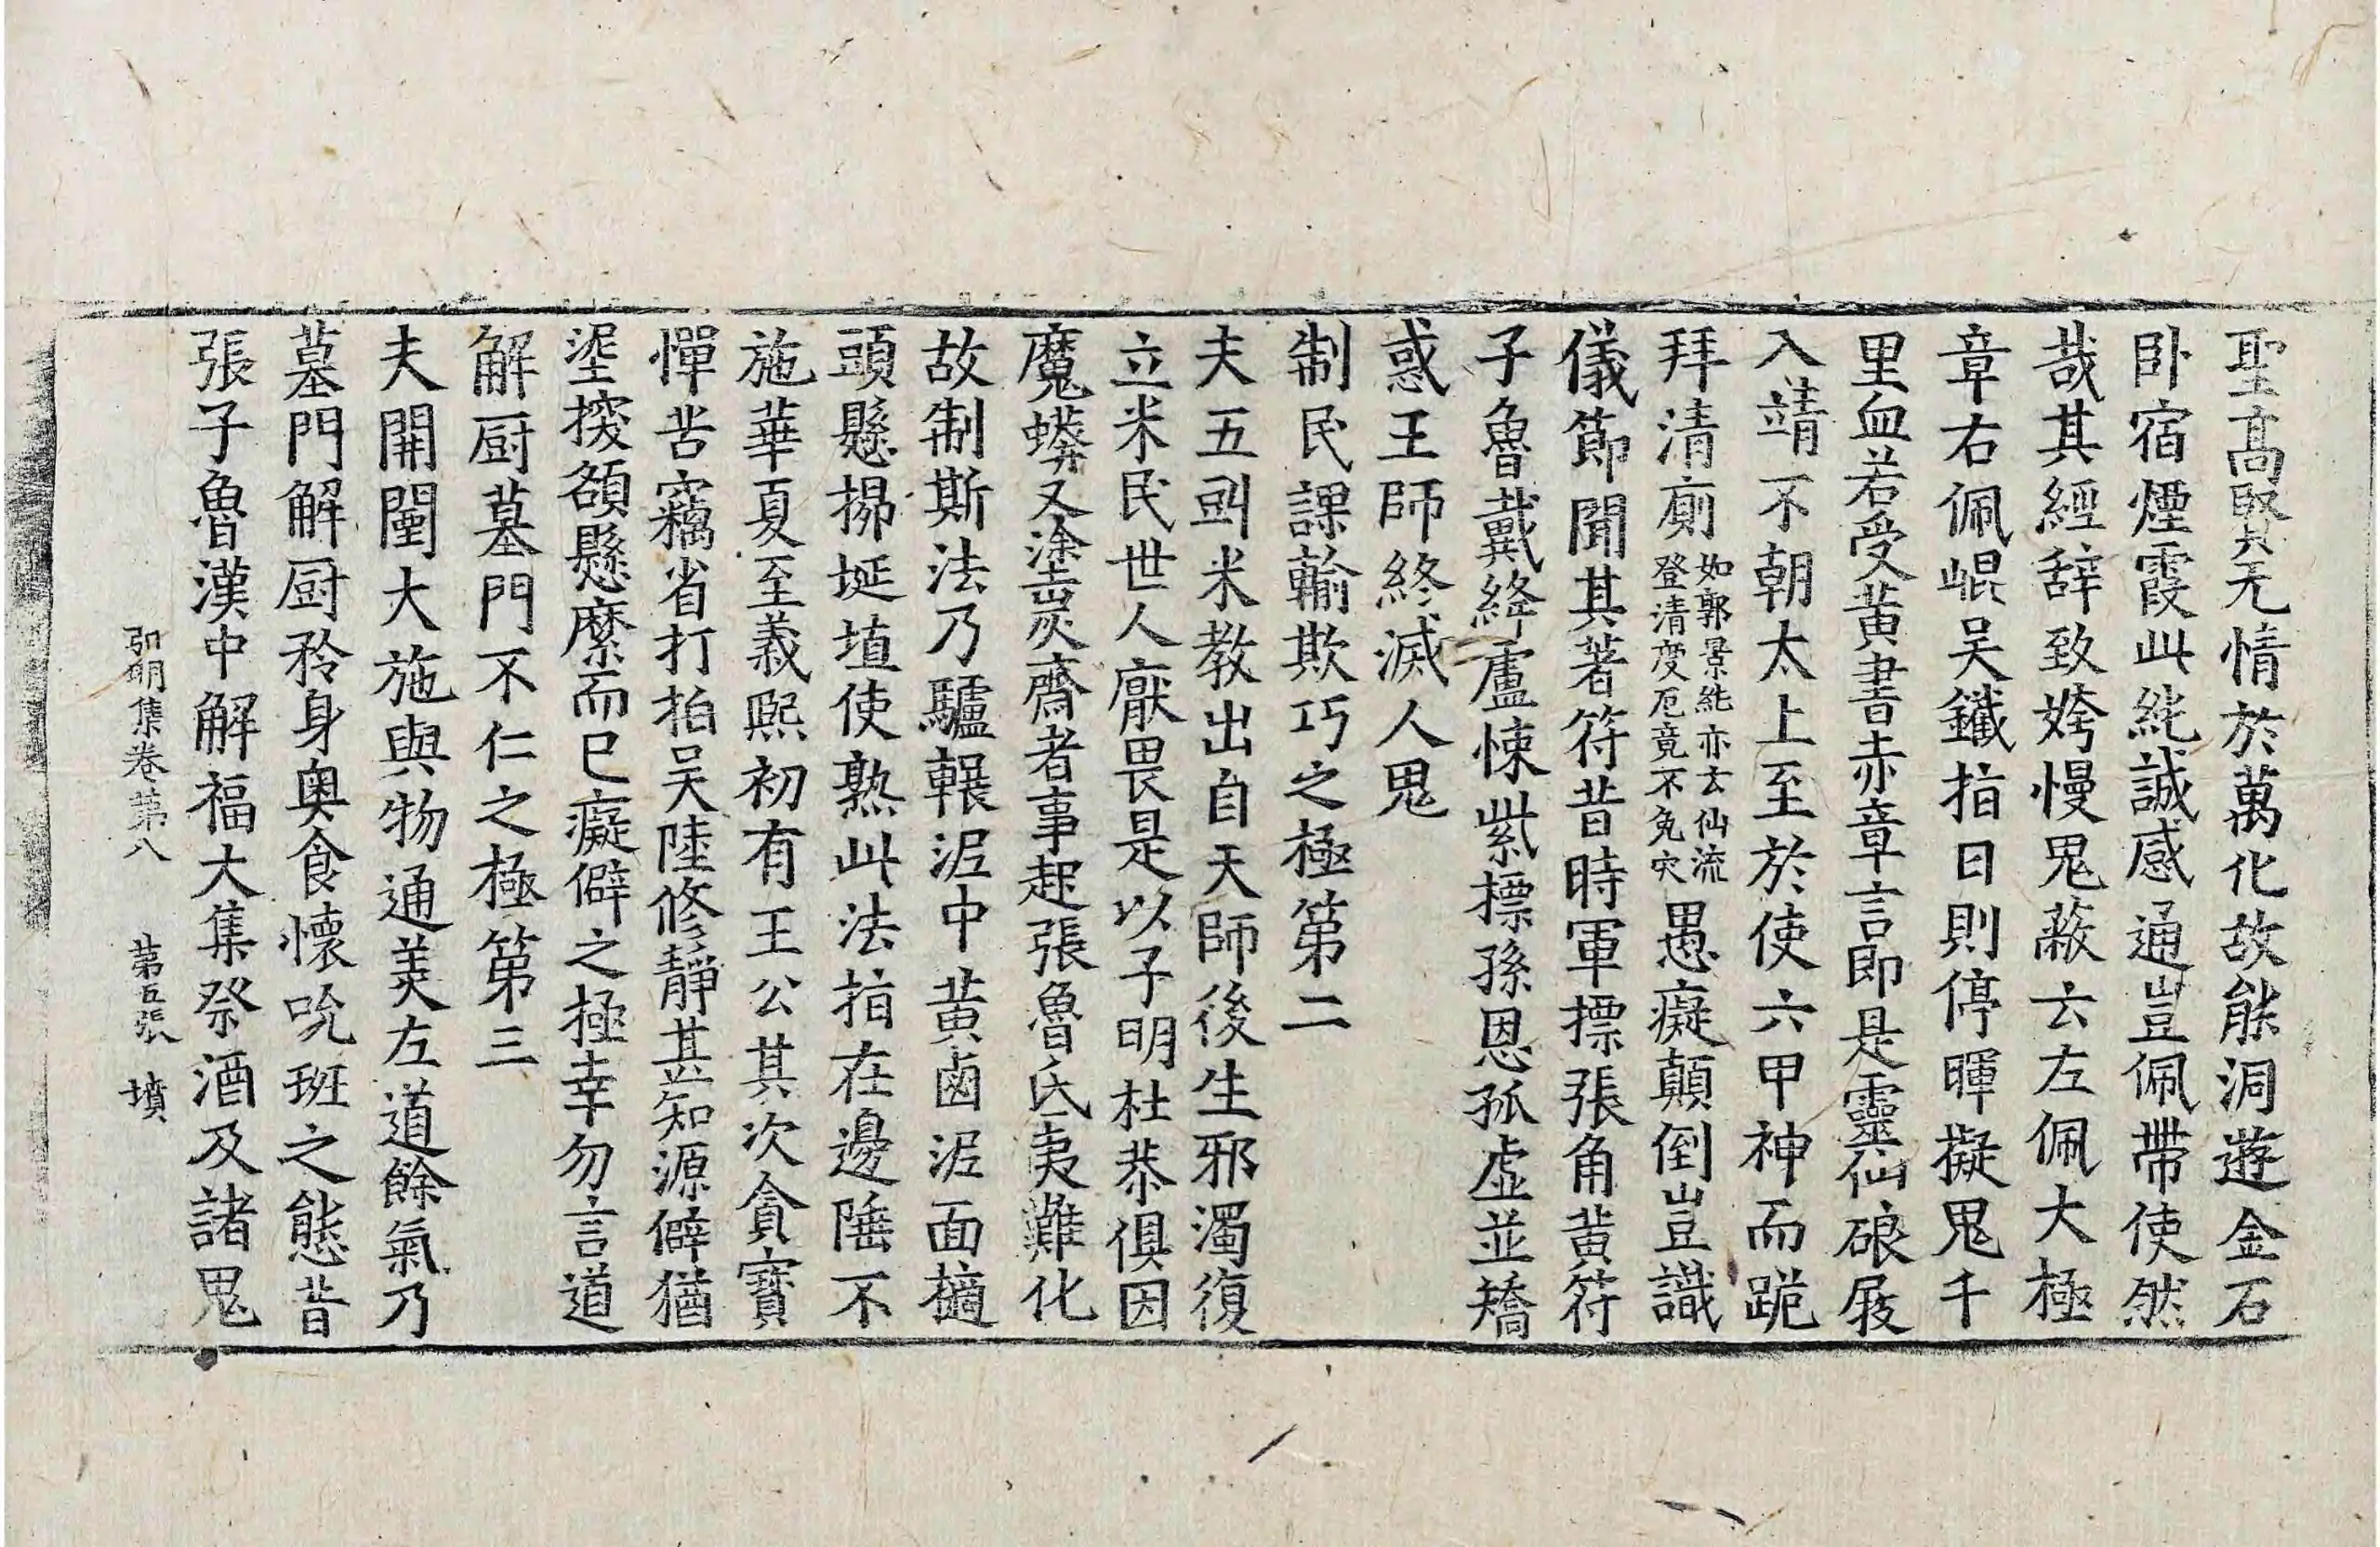 聖高賢无情於萬化故能洞遊金石
卧宿煙霞此純誠感通豈佩帶使然
㦲其經辞致姱慢鬼蔽云左佩大極
章右佩崐吴鐵指日則停暉擬鬼千
里血若受黄書赤章言即是靈仙硠屐
入靖不朝太上至於使六甲神而跪
拜清廁如郭景純亦云仙流登清度厄竟不免灾愚癡顛倒豈識
儀節聞其著符昔時軍摽張角黄符
子魯戴絳盧悚紫摽孫恩孤虛並矯
惑王師終滅人鬼
制民課輸欺巧之極第二
夫五㪷米教出自天師後生邪濁復
立米民世人厭畏是以子明杜恭俱因
魔蟒又塗炭齋者事起張魯氏夷難化
故制斯法乃驢輾泥中黄鹵泥面擿
頭懸㧣埏埴使熟此法指在邊陲不
施華夏至義熙初有王公其次貪寳
憚苦竊省打拍吴陸修靜甚知源僻猶
埿揬額懸縻而已癡僻之極幸勿言道
解厨墓門不仁之極第三
夫開闡大施與物通美左道餘氣乃
墓門解厨矜身奥食懷吮班之態昔
張子魯漢中解福大集祭酒及諸鬼
弘明集卷第八 第五張 墳